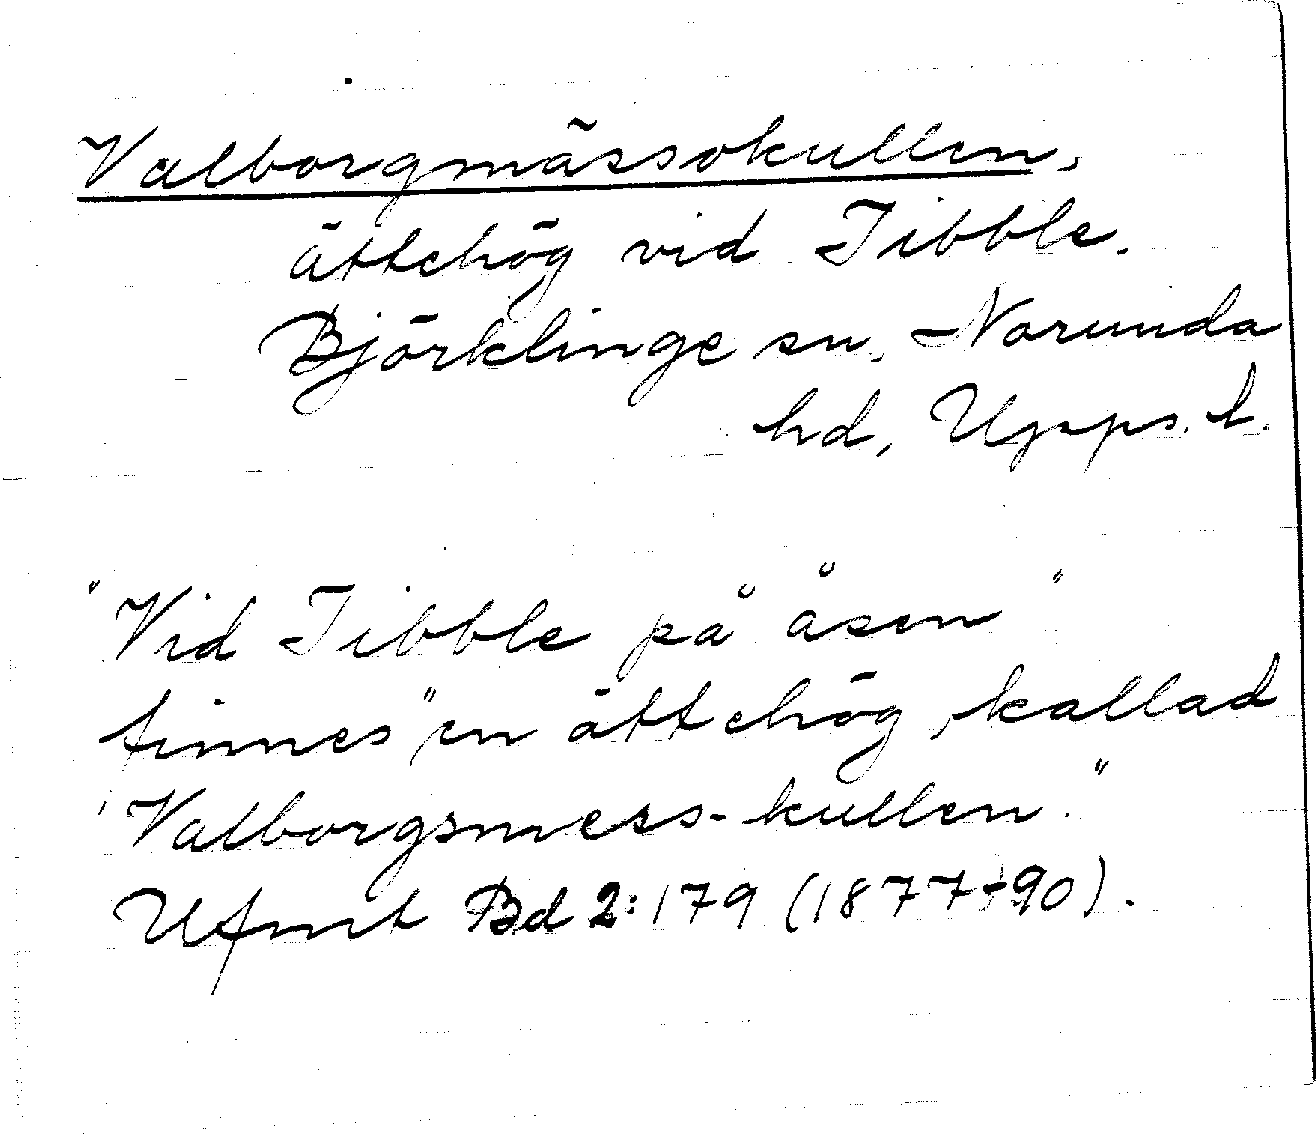 Valborgmässokullen,
ättehög vid Tibble.
Björklinge sn, Norunda
hd, Upps. l.
"Vid Tibble på åsen"
finnes "en ättehög, kallad
'Valborgsmess-kullen."
Ufmt Bd 2:179 (1877-90).